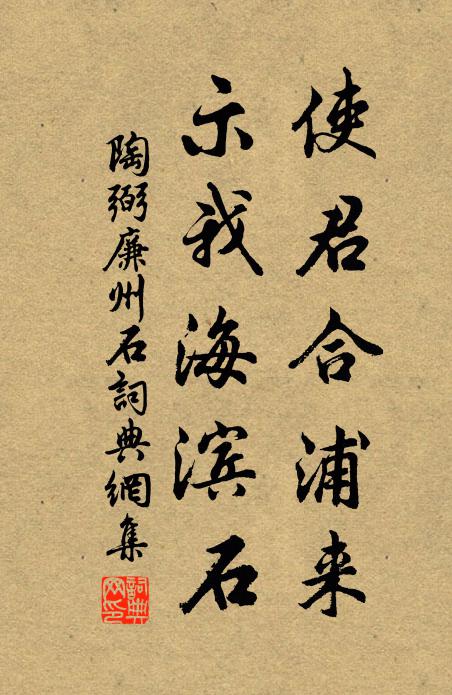 使君合浦来
示我海滨石
陶弼廉州石詞典網集
詞典网印